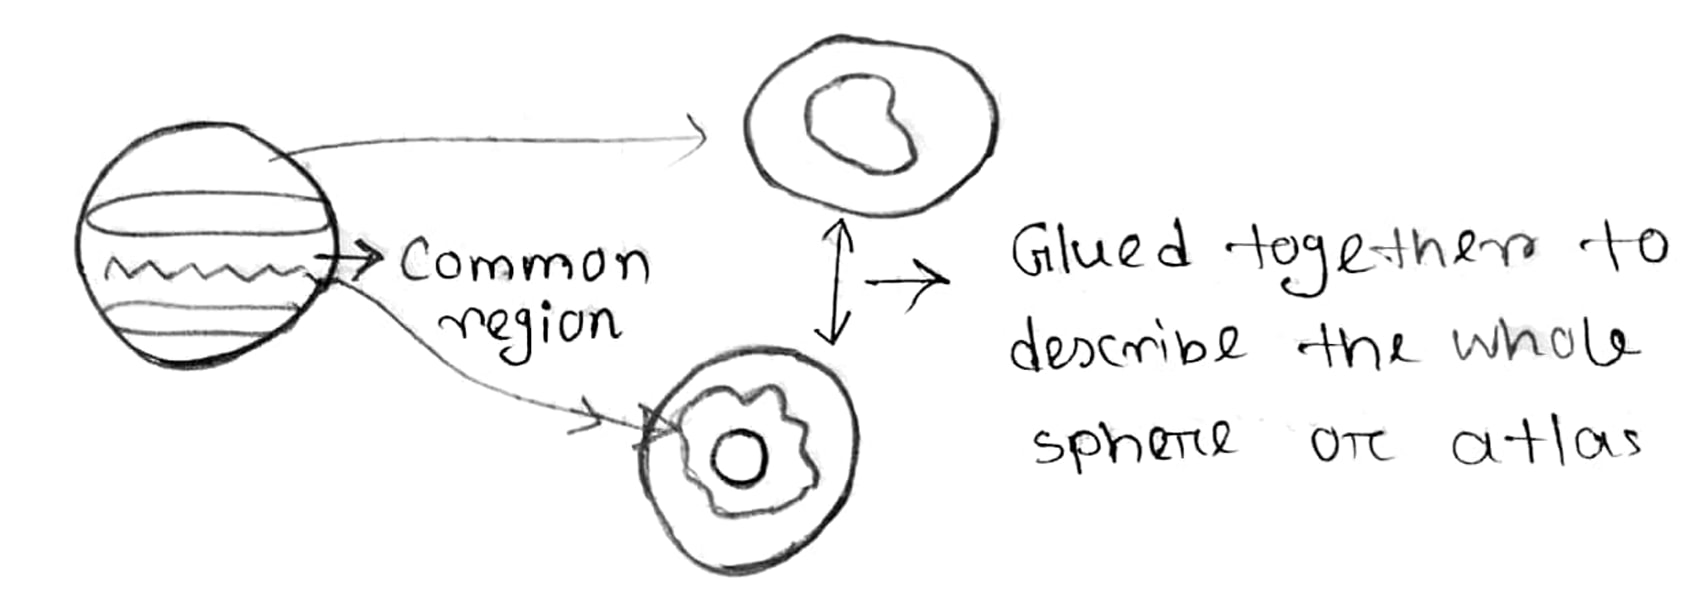 Common
region
Glued together to
describe the whole
sphere or atlas